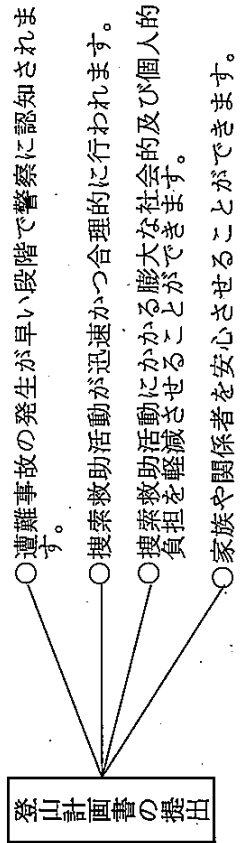 登山計画書の提出
○遭難事故の発生が早い段階で警察に認知されま
す。
○捜索救助活動が迅速かつ合理的に行われます。
○捜索救助活動にかかる膨大な社会的及び個人的
負担を軽減させることができます。
○家族や関係者を安心させることができます。